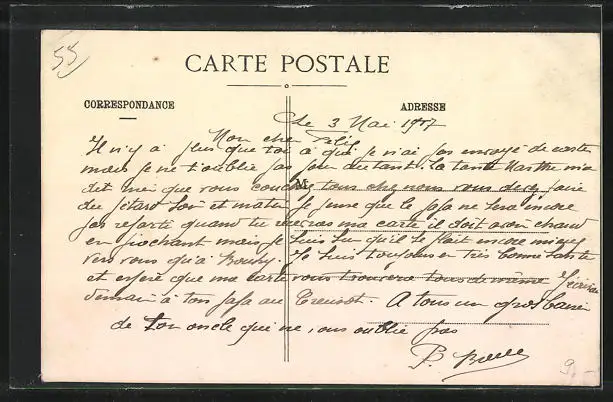 55
CARTE POSTALE
CORRESPONDANCE
ADRESSE
Le 3 Mai 1917
Mon cher
Il n'y a plus que toi à qui je n'ai pas envoyé de carte
mais je ne t'oublie pas pour autant. La tante Marthe m'a
dit que vous couchez tous chez nous vous devez faire
du pétard soir et matin je pense que le papa ne sera encore
pas reparti quand tu recevras ma carte il doit avoir chaud
en piochant mais je suis sur qu'il se plait encore mieux
vers vous qu'à . Je suis toujours en très bonne santé
et espère que ma carte vous trouvera tous de même J'écrirai
demain à ton papa au Creusot. A tous un gros baiser
de ton oncle qui ne vous oublie pas
M
P.
9.-